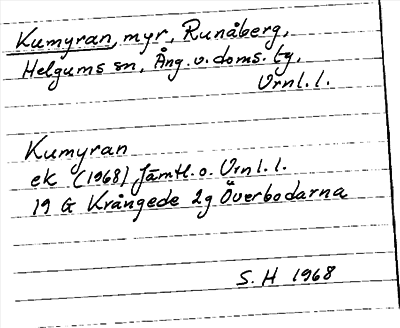 Kumyran, myr, Runåberg,
Helgums sn, Ång. v. doms. tg,
Vrnl. l.
Kumyran
ek (1968) Jämtl. o. Vrnl. l.
19 G Krångede 2g Överbodarna
S. H 1968